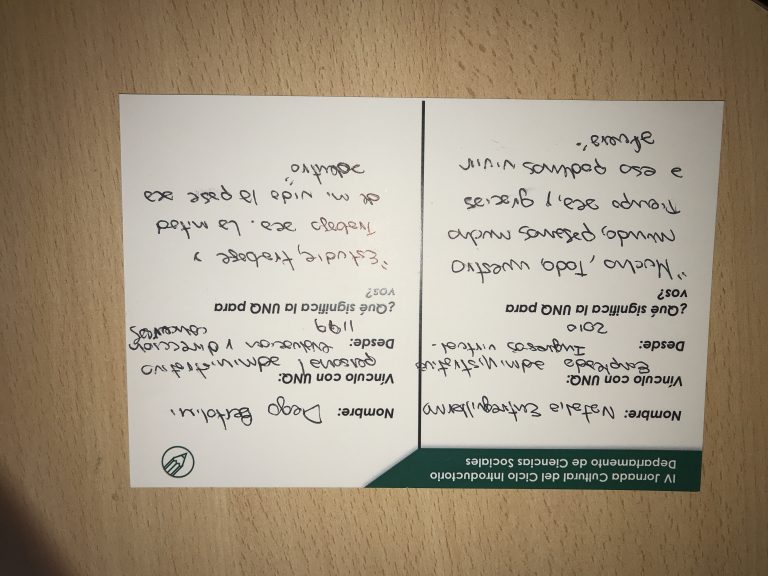 IV Jornada Cultural del Ciclo Introductorio
Departamento de Ciencias Sociales
Nombre: Natalia
Vínculo con UNQ:
Empleada administrativa
Desde: Ingresos virtual.
2010
¿Qué significa la UNQ para
vos?
"Mucho, Todo nuestro
mundo, pasamos mucho
Tiempo aca, y gracias
a eso podemos vivir
afuera".
Nombre: Diego Bertolini
Vínculo con UNQ:
personal administrativo
Desde: evaluacion y direccion
1199 concursos
¿Qué significa la UNQ para
vos?
"Estudie, trabaje y
Trabajo aca. La mitad
de mi vida la pase aca
adentro"